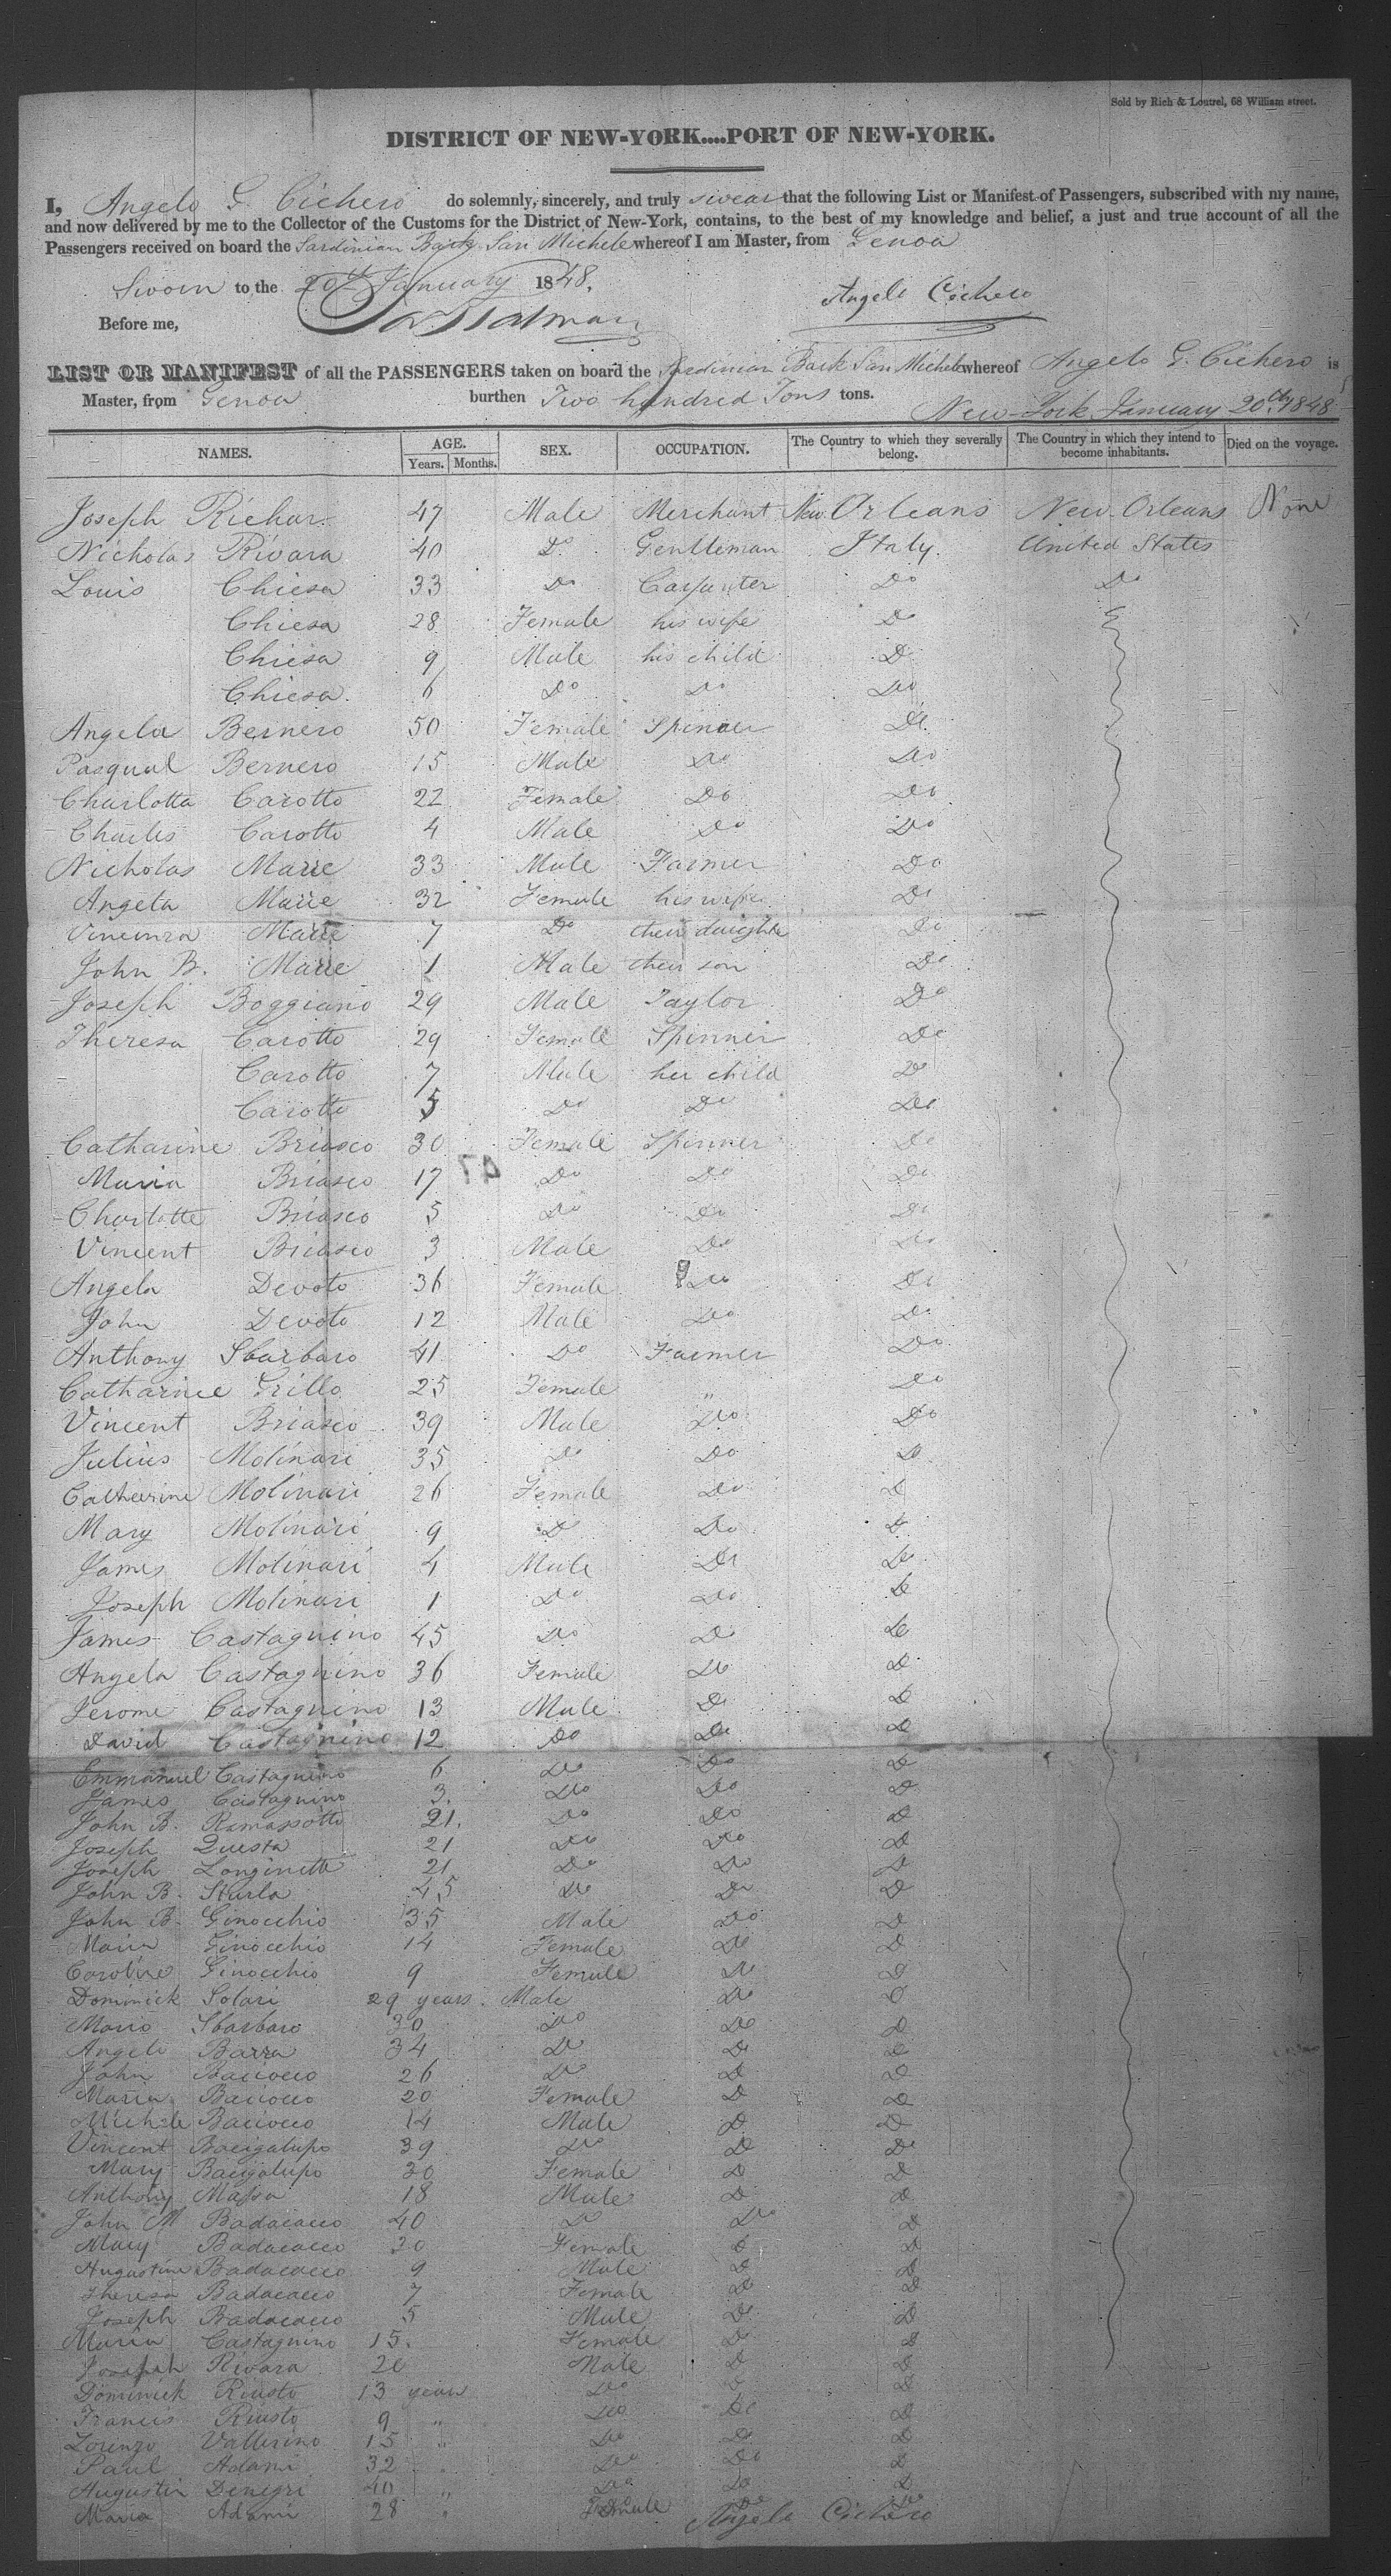 Sold by Rich & Loutrel, 68 William street.
DISTRICT OF NEW-YORK....PORT OF NEW-YORK.
I, Angelo G. Cichero do solemnly, sincerely, and truly swear that the following List or Manifest of Passengers, subscribed with my name,
and now delivered by me to the Collector of the Customs for the District of New-York, contains, to the best of my knowledge and belief, a just and true account of all the
Passengers received on board the Sardinian Bark San Michele whereof I am Master, from Genoa
Sworn to the 20th January 1848. Angelo Cichero
Before me,
LIST OR MANIFEST of all the PASSENGERS taken on board the Sardinian Bark San Michele whereof Angelo G. Cichero is
Master, from Genoa burthen Two hundred Tons tons.
New-York January 20th 1848
NAMES. AGE. Years. Months. SEX. OCCUPATION. The Country to which they severally belong. The Country in which they intend to become inhabitants. Died on the voyage.
Joseph Richar 47 Male Merchant New Orleans New-Orleans None
Nicholas Rivara 40 Do Gentleman Italy United States
Louis Chiesa 33 Do Carpenter Do Do
Chiesa 28 Female his wife Do
Chiesa 9 Male his child Do
Chiesa 6 Do Do Do
Angela Bernero 50 Female Spinner Do
Pasqual Bernero 15 Male Do Do
Charlotta Carotto 22 Female Do Do
Charles Carotto 4 Male Do Do
Nicholas Marre 33 Male Farmer Do
Angela Marre 32 Female his wife Do
Vincenza Marre 7 Do their daughte Do
John B. Marre 1 Male their son Do
Joseph Boggiano 29 Male Taylor Do
Theresa Carotto 29 Female Spinner Do
Carotto 7 Male her child Do
Carotto 5 Do Do Do
Catharine Briasco 30 Female Spinner Do
Maria Briasco 17 Do Do Do
Charlotte Briasco 5 Do Do Do
Vincent Briasco 3 Male Do Do
Angela Devoto 36 Female Do Do
John Devoto 12 Male Do Do
Anthony Sbarbaro 41 Do Farmer Do
Catharine Grillo 25 Female " Do
Vincent Briasco 39 Male Do Do
Julius Molinari 35 Do Do Do
Catherine Molinari 26 Female Do Do
Mary Molinari 9 Do Do Do
James Molinari 4 Male Do Do
Joseph Molinari 1 Do Do Do
James Castagnino 45 Do Do Do
Angela Castagnino 36 Female Do Do
Jerome Castagnino 13 Male Do Do
David Castagnino 12 Do Do Do
Emmanuel Castagnino 6 Do Do Do
James Castagnino 3. Do Do Do
John B. Ramassotto 21. Do Do Do
Joseph Questa 21 Do Do Do
Joseph Longinetti 21 Do Do Do
John B. Sturla 45 Do Do Do
John B. Ginocchio 35 Male Do Do
Maria Ginocchio 14 Female Do Do
Caroline Ginocchio 9 Female Do Do
Dominick Solari 29 years. Male Do Do
Mario Sbarbaro 30 Do Do Do
Angelo Barra 34 Do Do Do
John Baciocco 26 Do Do Do
Maria Baciocco 20 Female Do Do
Michele Baciocco 14 Male Do Do
Vincent Bacigalupo 39 Do Do Do
Mary Bacigalupo 30 Female Do Do
Anthony Massa 18 Male Do Do
John M Badaracco 40 Do Do Do
Mary Badaracco 30 Female Do Do
Augustine Badaracco 9 Male Do Do
Theresa Badaracco 7 Female Do Do
Joseph Badaracco 5 Male Do Do
Maria Castagnino 15. Female Do Do
Joseph Rivara 20 Male Do Do
Dominick Riusto 13 years Do Do Do
Francis Riusto 9 " Do Do Do
Lorenzo Vallerino 15 " Do Do Do
Paul Adami 32 " Do Do Do
Augustin Denegri 40 " Do Do Do
Maria Adami 28 " Female Do Do
Angelo Cichero